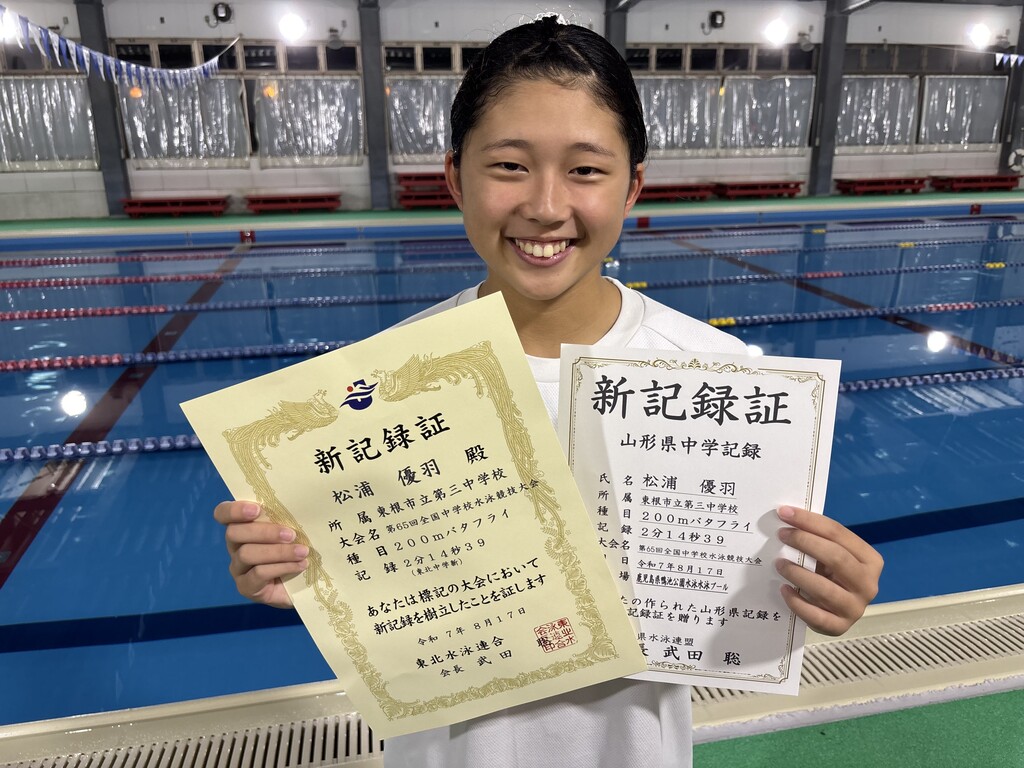 新記録証
松浦 優羽 殿
所属 東根市立第三中学校
大会名 第65回全国中学校水泳競技大会
種目 200mバタフライ
記録 2分14秒39
(東北中学新)
あなたは標記の大会において
新記録を樹立したことを証します
令和 7年 8月17日
東北水泳連合
会長 武田
新記録証
山形県中学記録
氏名 松浦 優羽
所属 東根市立第三中学校
種目 200mバタフライ
記録 2分14秒39
大会名 第65回全国中学校水泳競技大会
日 令和7年8月17日
場 鹿児島県鴨池公園水泳水泳プール
たの作られた山形県記録を
記録証を贈ります
県水泳連盟
長 武田 聡